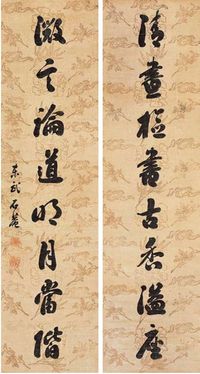 清晝橅書古香溢座
微言論道明月當階
東武石菴